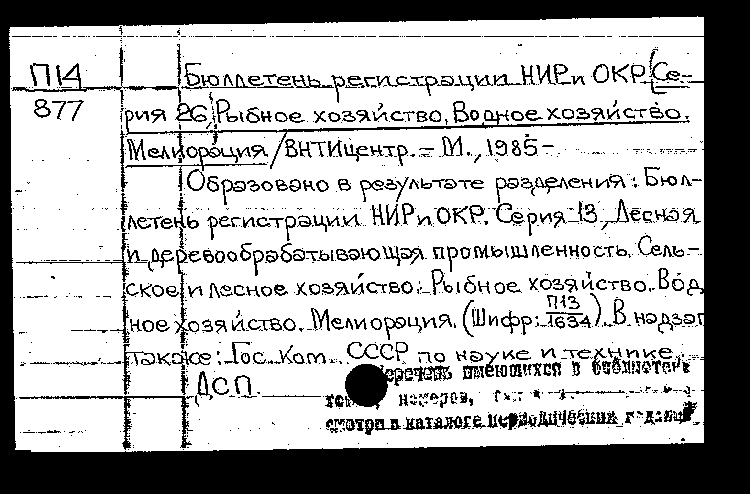 П14 Бюллетень регистрации НИР и ОКР. [Се-
877 рия 26], Рыбное хозяйство. Водное хозяйство.
Мелиорация / ВНТИцентр. – М., 1985 –
Образовано в результате разделения: Бюл-
летень регистрации НИР и ОКР. Серия 13, Лесная
и деревообрабатывающая промышленность. Сель-
ское и лесное хозяйство. Рыбное хозяйство. Вод
ное хозяйство. Мелиорация. (Шифр: П13/1634). В надзаг
также: Гос. Ком. СССР по науке и технике.
ДСП. перечень имеющихся в библиотеке
номеров,
смотри в каталоге периодических изданий